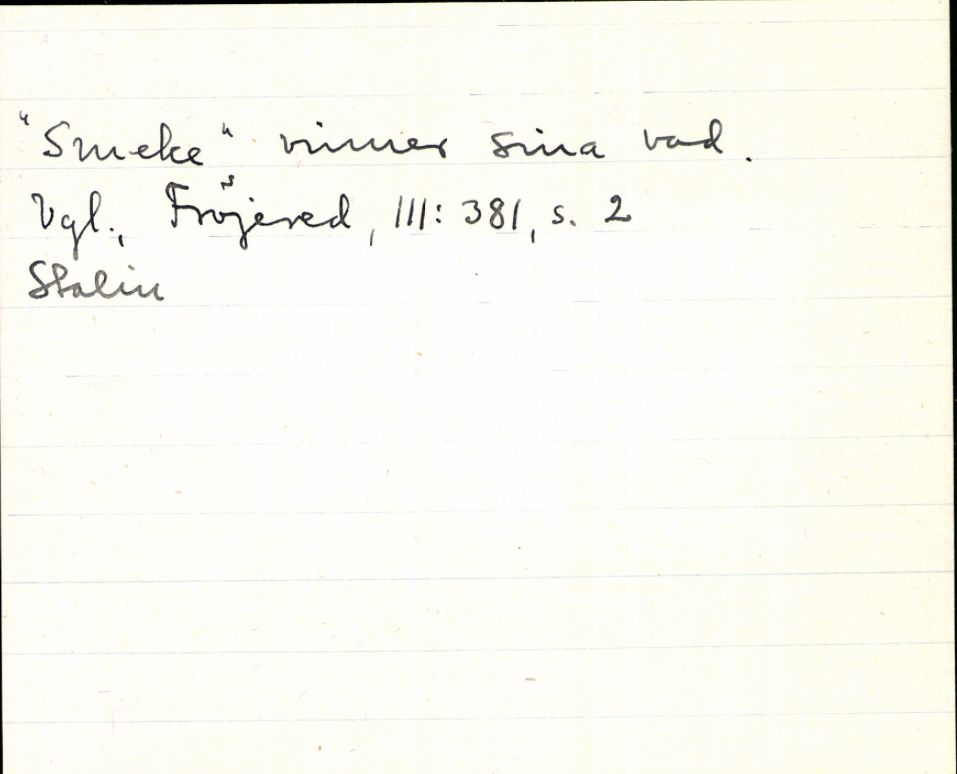 "Smeke" vinner sina vad.
Vgl., Fröjered, III: 381, s. 2
Stalin